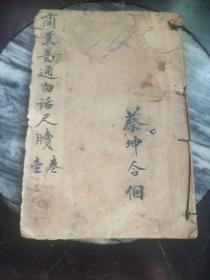 蔡坤合佪
商業普通白話尺牘
卷壹